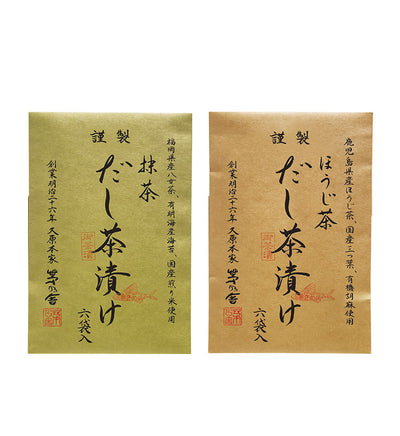 謹製
福岡県産八女茶、有明海産海苔、国産煎り米使用
抹茶
だし茶漬け
六袋入
創業明治二十六年 久原本家 茅乃舎
御茶漬
謹製
鹿児島県産ほうじ茶、国産三つ葉、有機胡麻使用
ほうじ茶
だし茶漬け
六袋入
創業明治二十六年 久原本家 茅乃舎
御茶漬